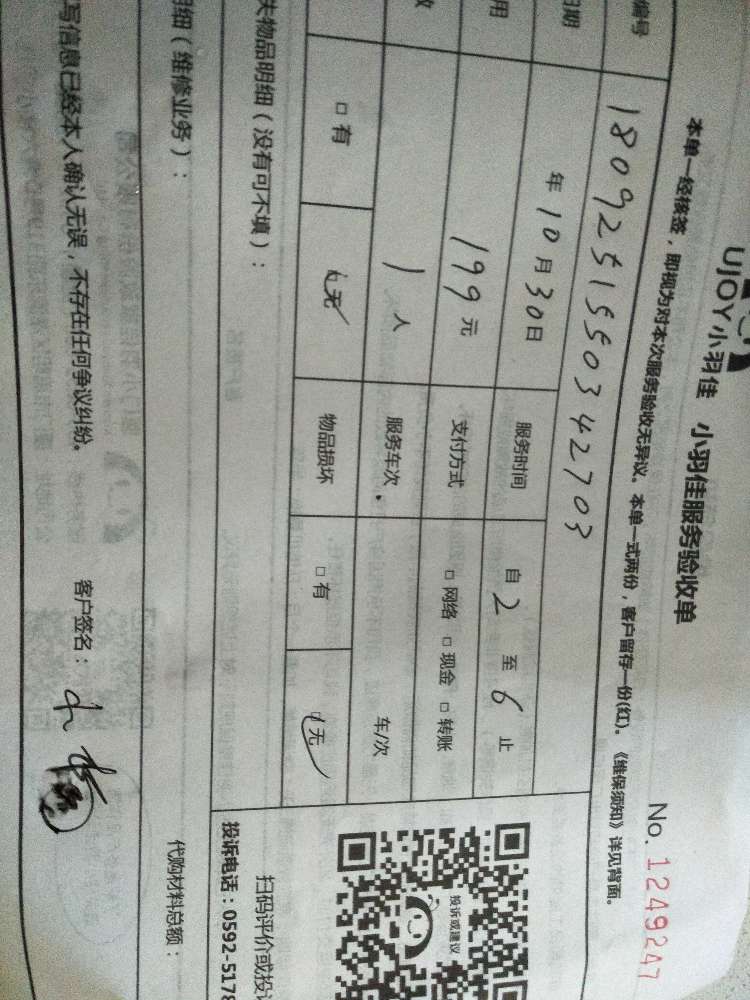 UJOY小羽佳 小羽佳服务验收单
No. 1249247
本单一经核签，即视为对本次服务验收无异议。本单一式两份，客户留存一份(红)。《维保须知》详见背面。
编号 1809251550342703
日期 年10月30日 服务时间 自2至6止
用 199元 支付方式 □网络 □现金 □转账
数 1人 服务车次 车/次
□有 无 物品损坏 □有 无
失物品明细（没有可不填）：
投诉或建议
扫码评价或投
投诉电话：0592-5178
明细（维修业务）：
代购材料总额：
写信息已经本人确认无误，不存在任何争议纠纷。 客户签名：